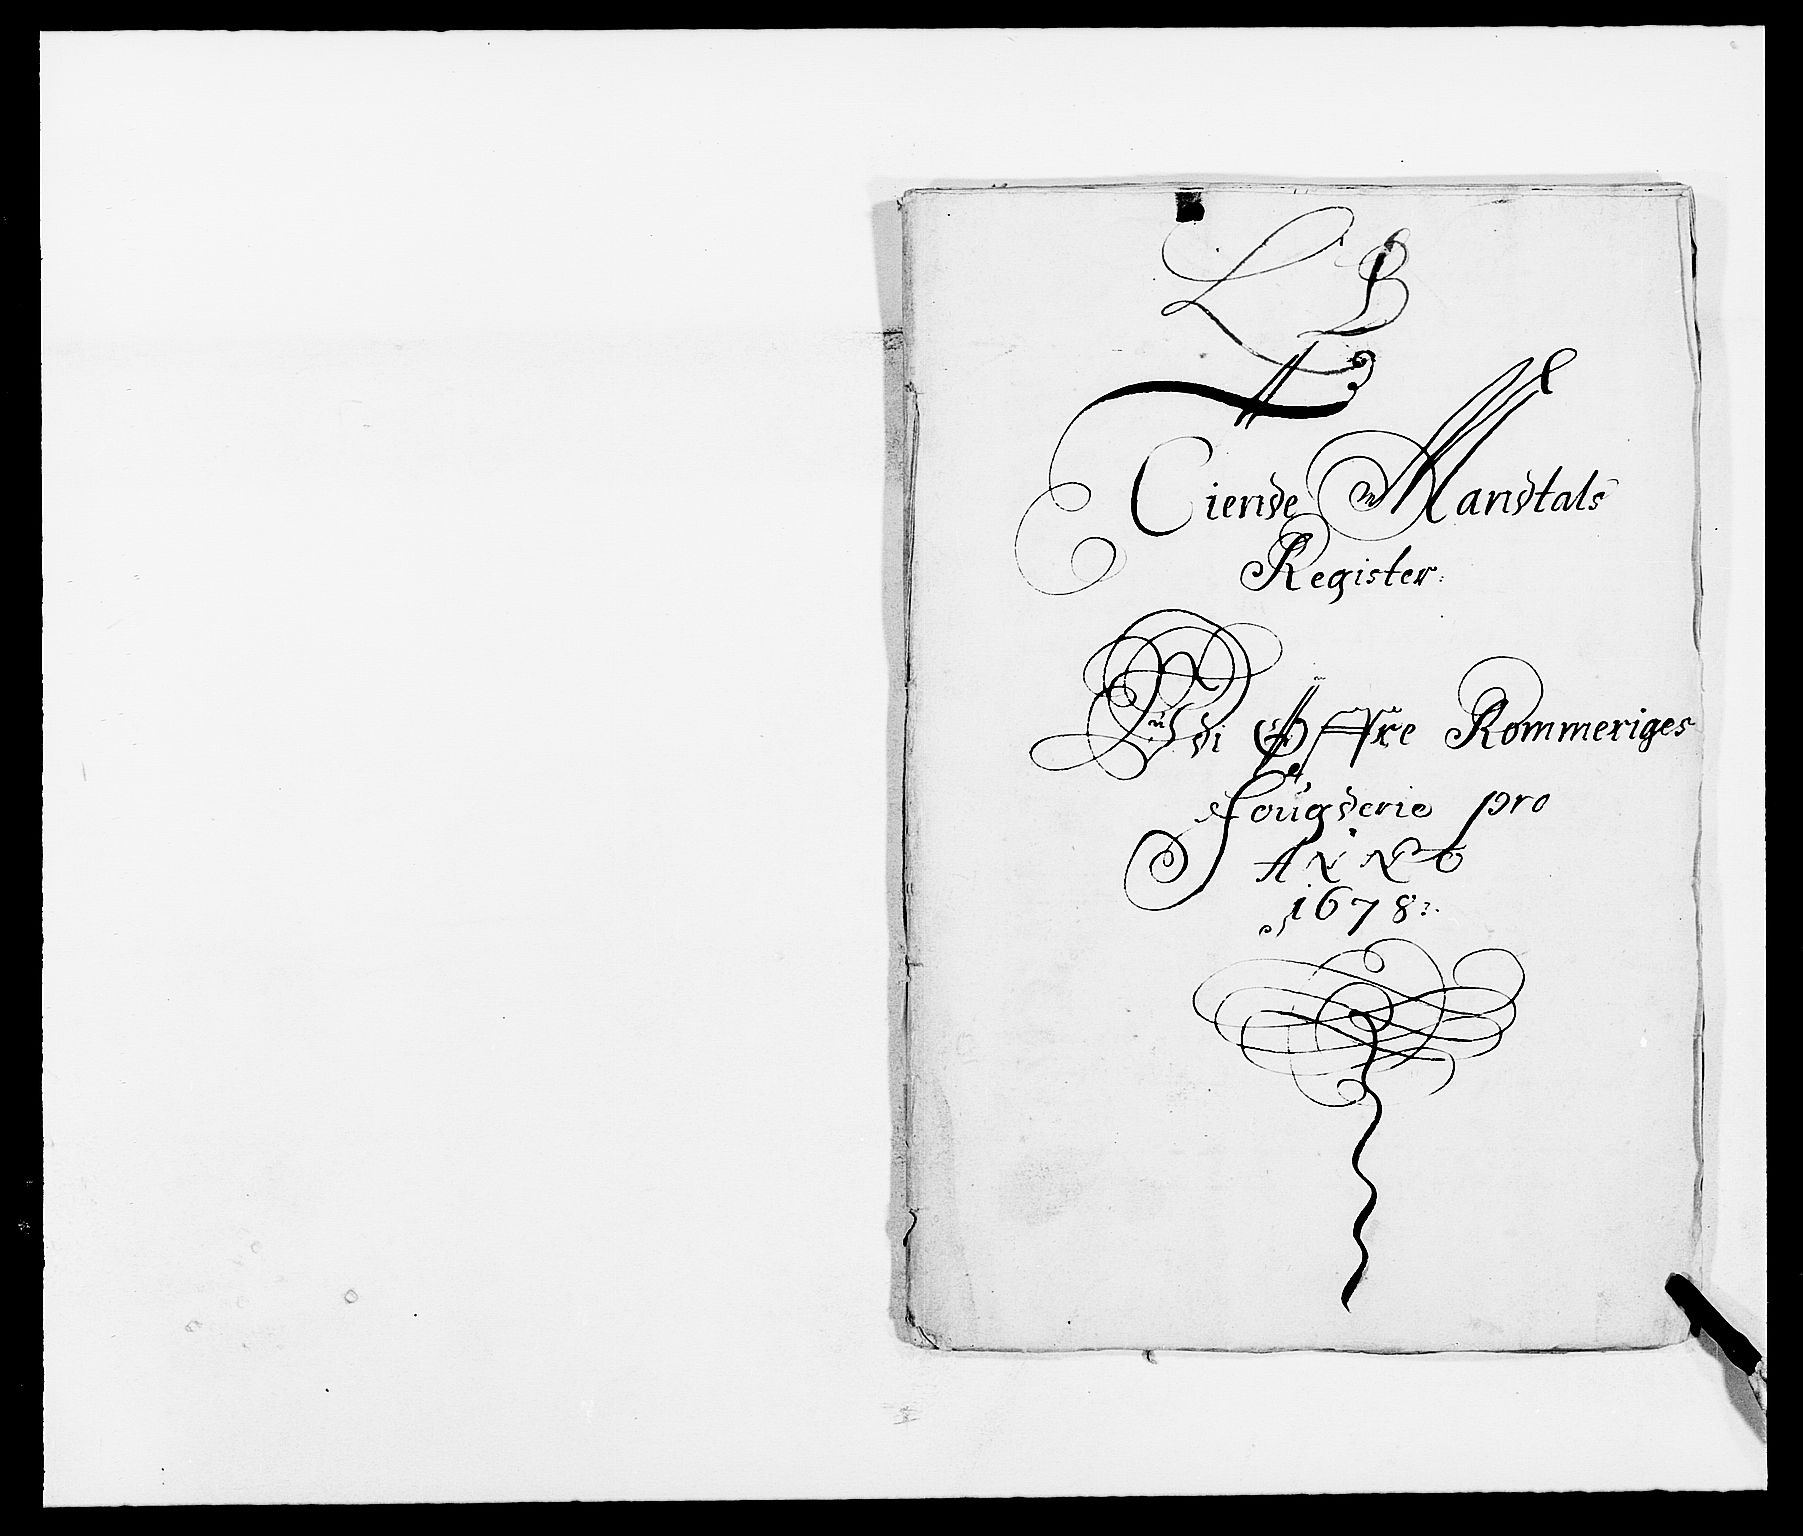 L B
Tiende Mandtals
Register.
Udi Øffre Rommeriges
Fougderie pro
ANNO
1678: